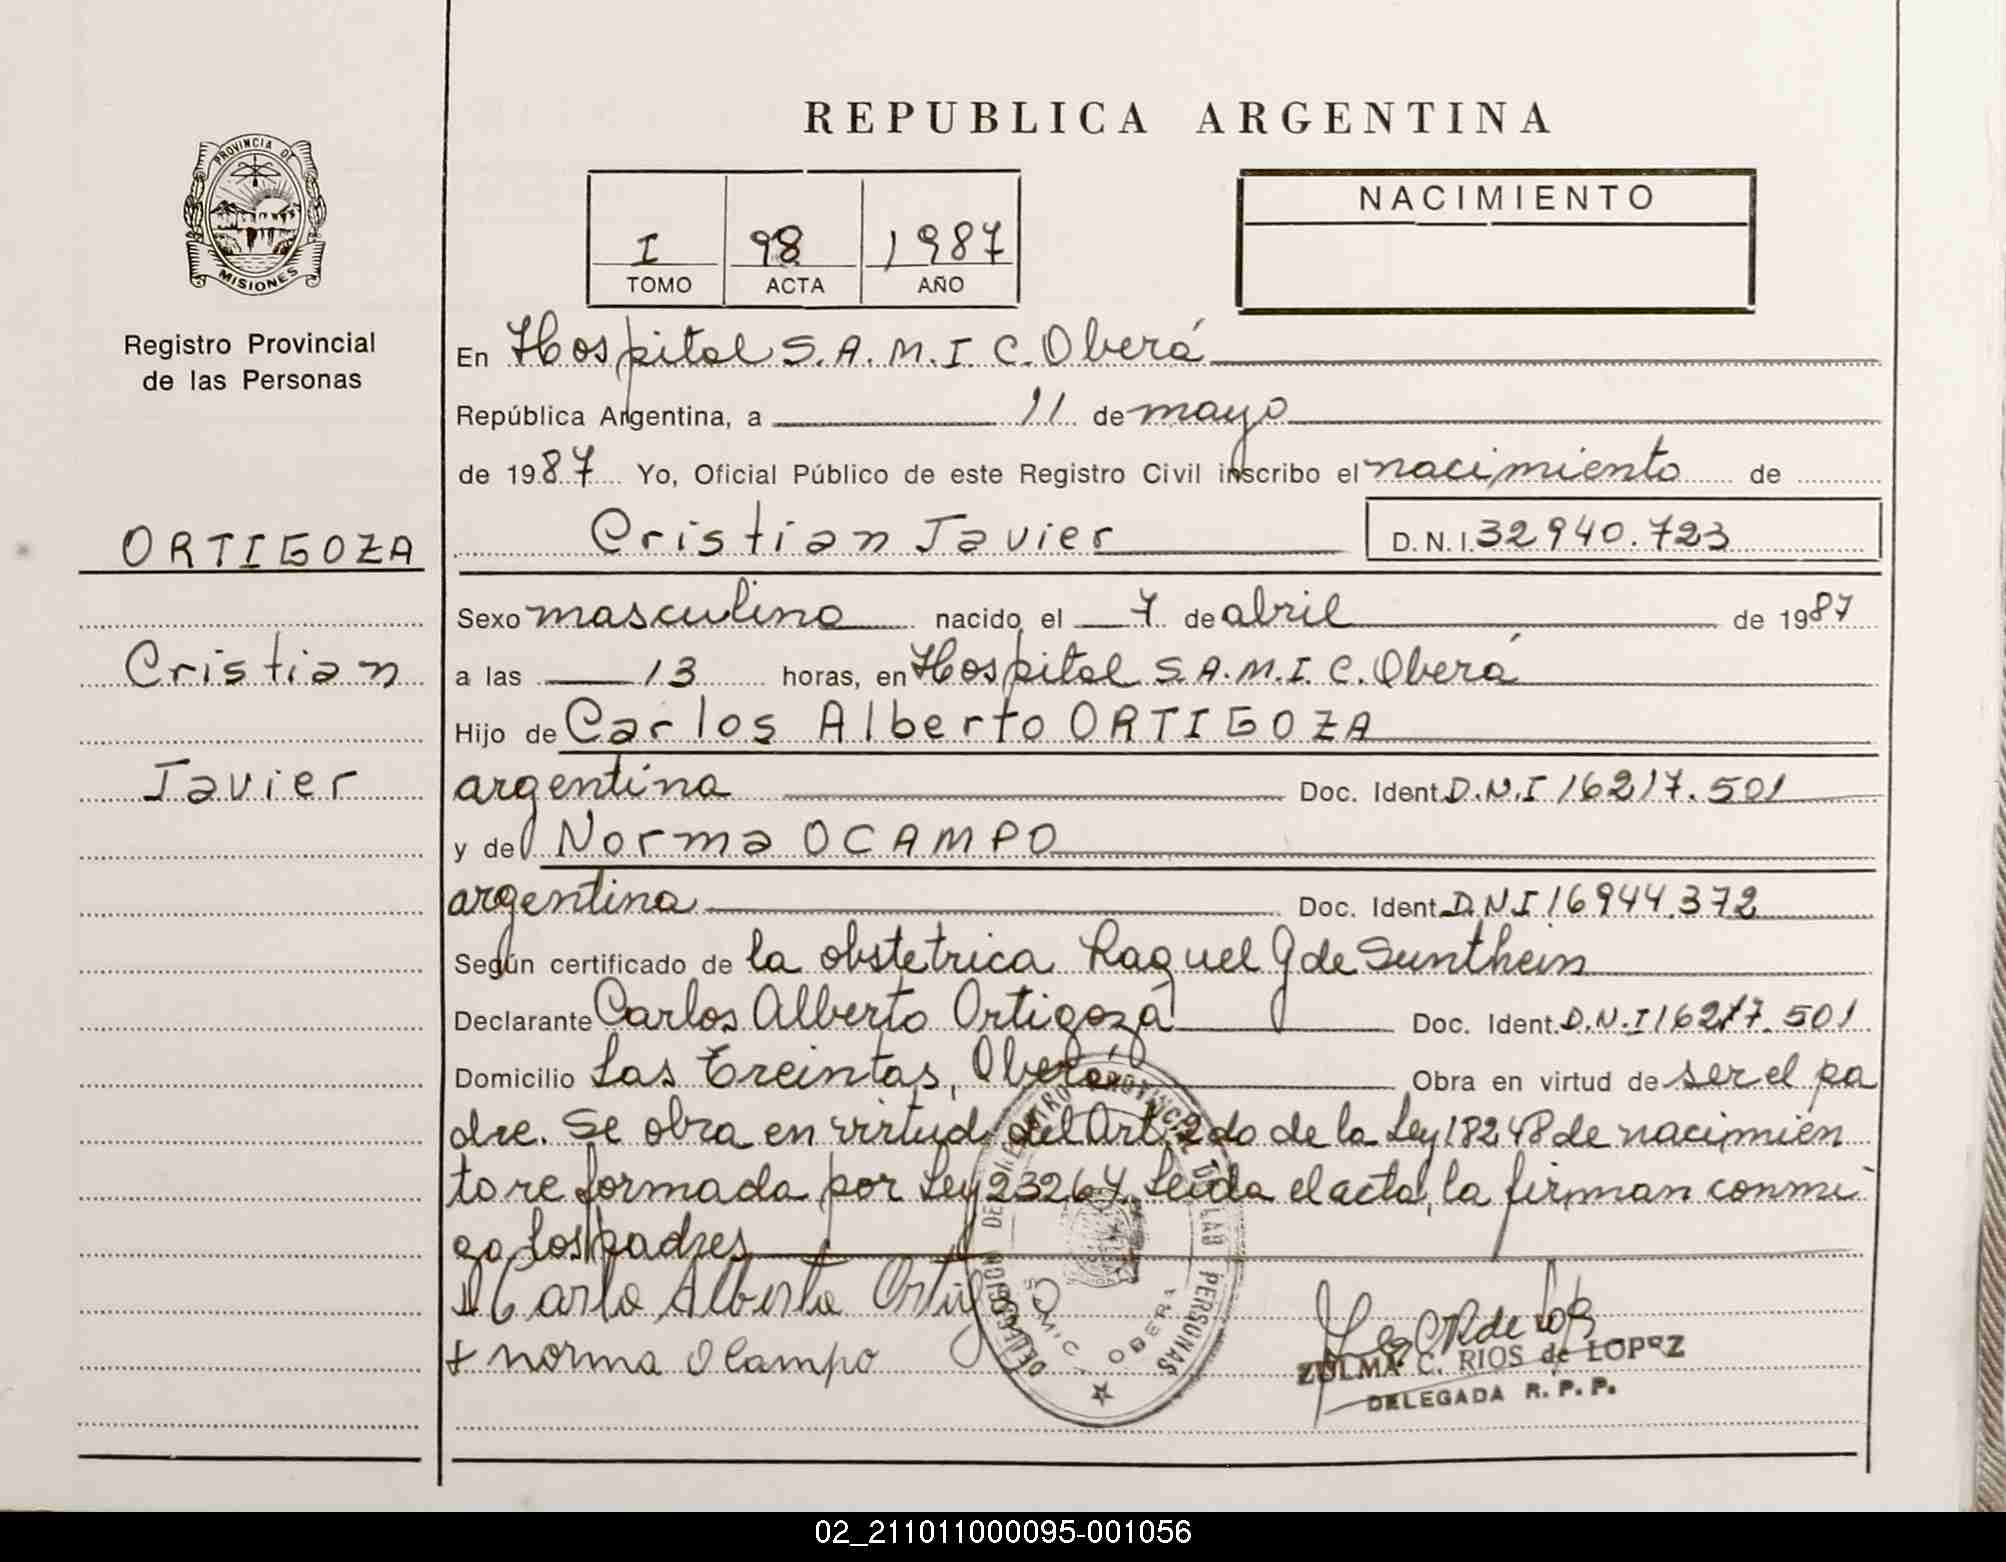 REPUBLICA ARGENTINA
PROVINCIA DE
MISIONES
Registro Provincial
de las Personas
ORTIGOZA
Cristian
Javier
I 98 1987
TOMO ACTA AÑO
NACIMIENTO
En Hospital S.A.M.I.C. Oberá
República Argentina, a 11 de mayo
de 1987 Yo, Oficial Público de este Registro Civil inscribo el nacimiento de
Cristian Javier D.N.I. 32940.723
Sexo masculino nacido el 7 de abril de 1987
a las 13 horas, en Hospital S.A.M.I.C. Oberá
Hijo de Carlos Alberto ORTIGOZA
argentina Doc. Ident. D.N.I 16217.501
y de Norma OCAMPO
argentina Doc. Ident. D.N.I 16944.372
Según certificado de la obstetrica Raquel G de Sunthein
Declarante Carlos Alberto Ortigoza Doc. Ident. D.N.I 16217.501
Domicilio Las Treintas, Oberá Obra en virtud de ser el pa
dre. Se obra en virtud del Art. 2do de la Ley 18248 de nacimien
to reformada por Ley 23264. Leida el acta, la firman conmi
go los padres
Carlo Alberto Ortigoza
+ norma Ocampo
DELEGACION DEL REGISTRO PROVINCIAL DE LAS PERSONAS
S.A.M.I.C. OBERA
ZULMA C. RIOS de LOPEZ
DELEGADA R. P. P.
02_211011000095-001056